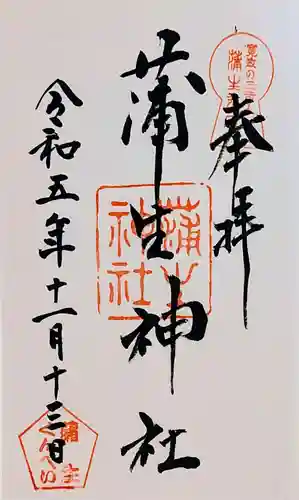 奉拝
寛政の三奇人
蒲生
蒲生神社
蒲生神社
令和五年十一月十三日
蒲生
くんぺい